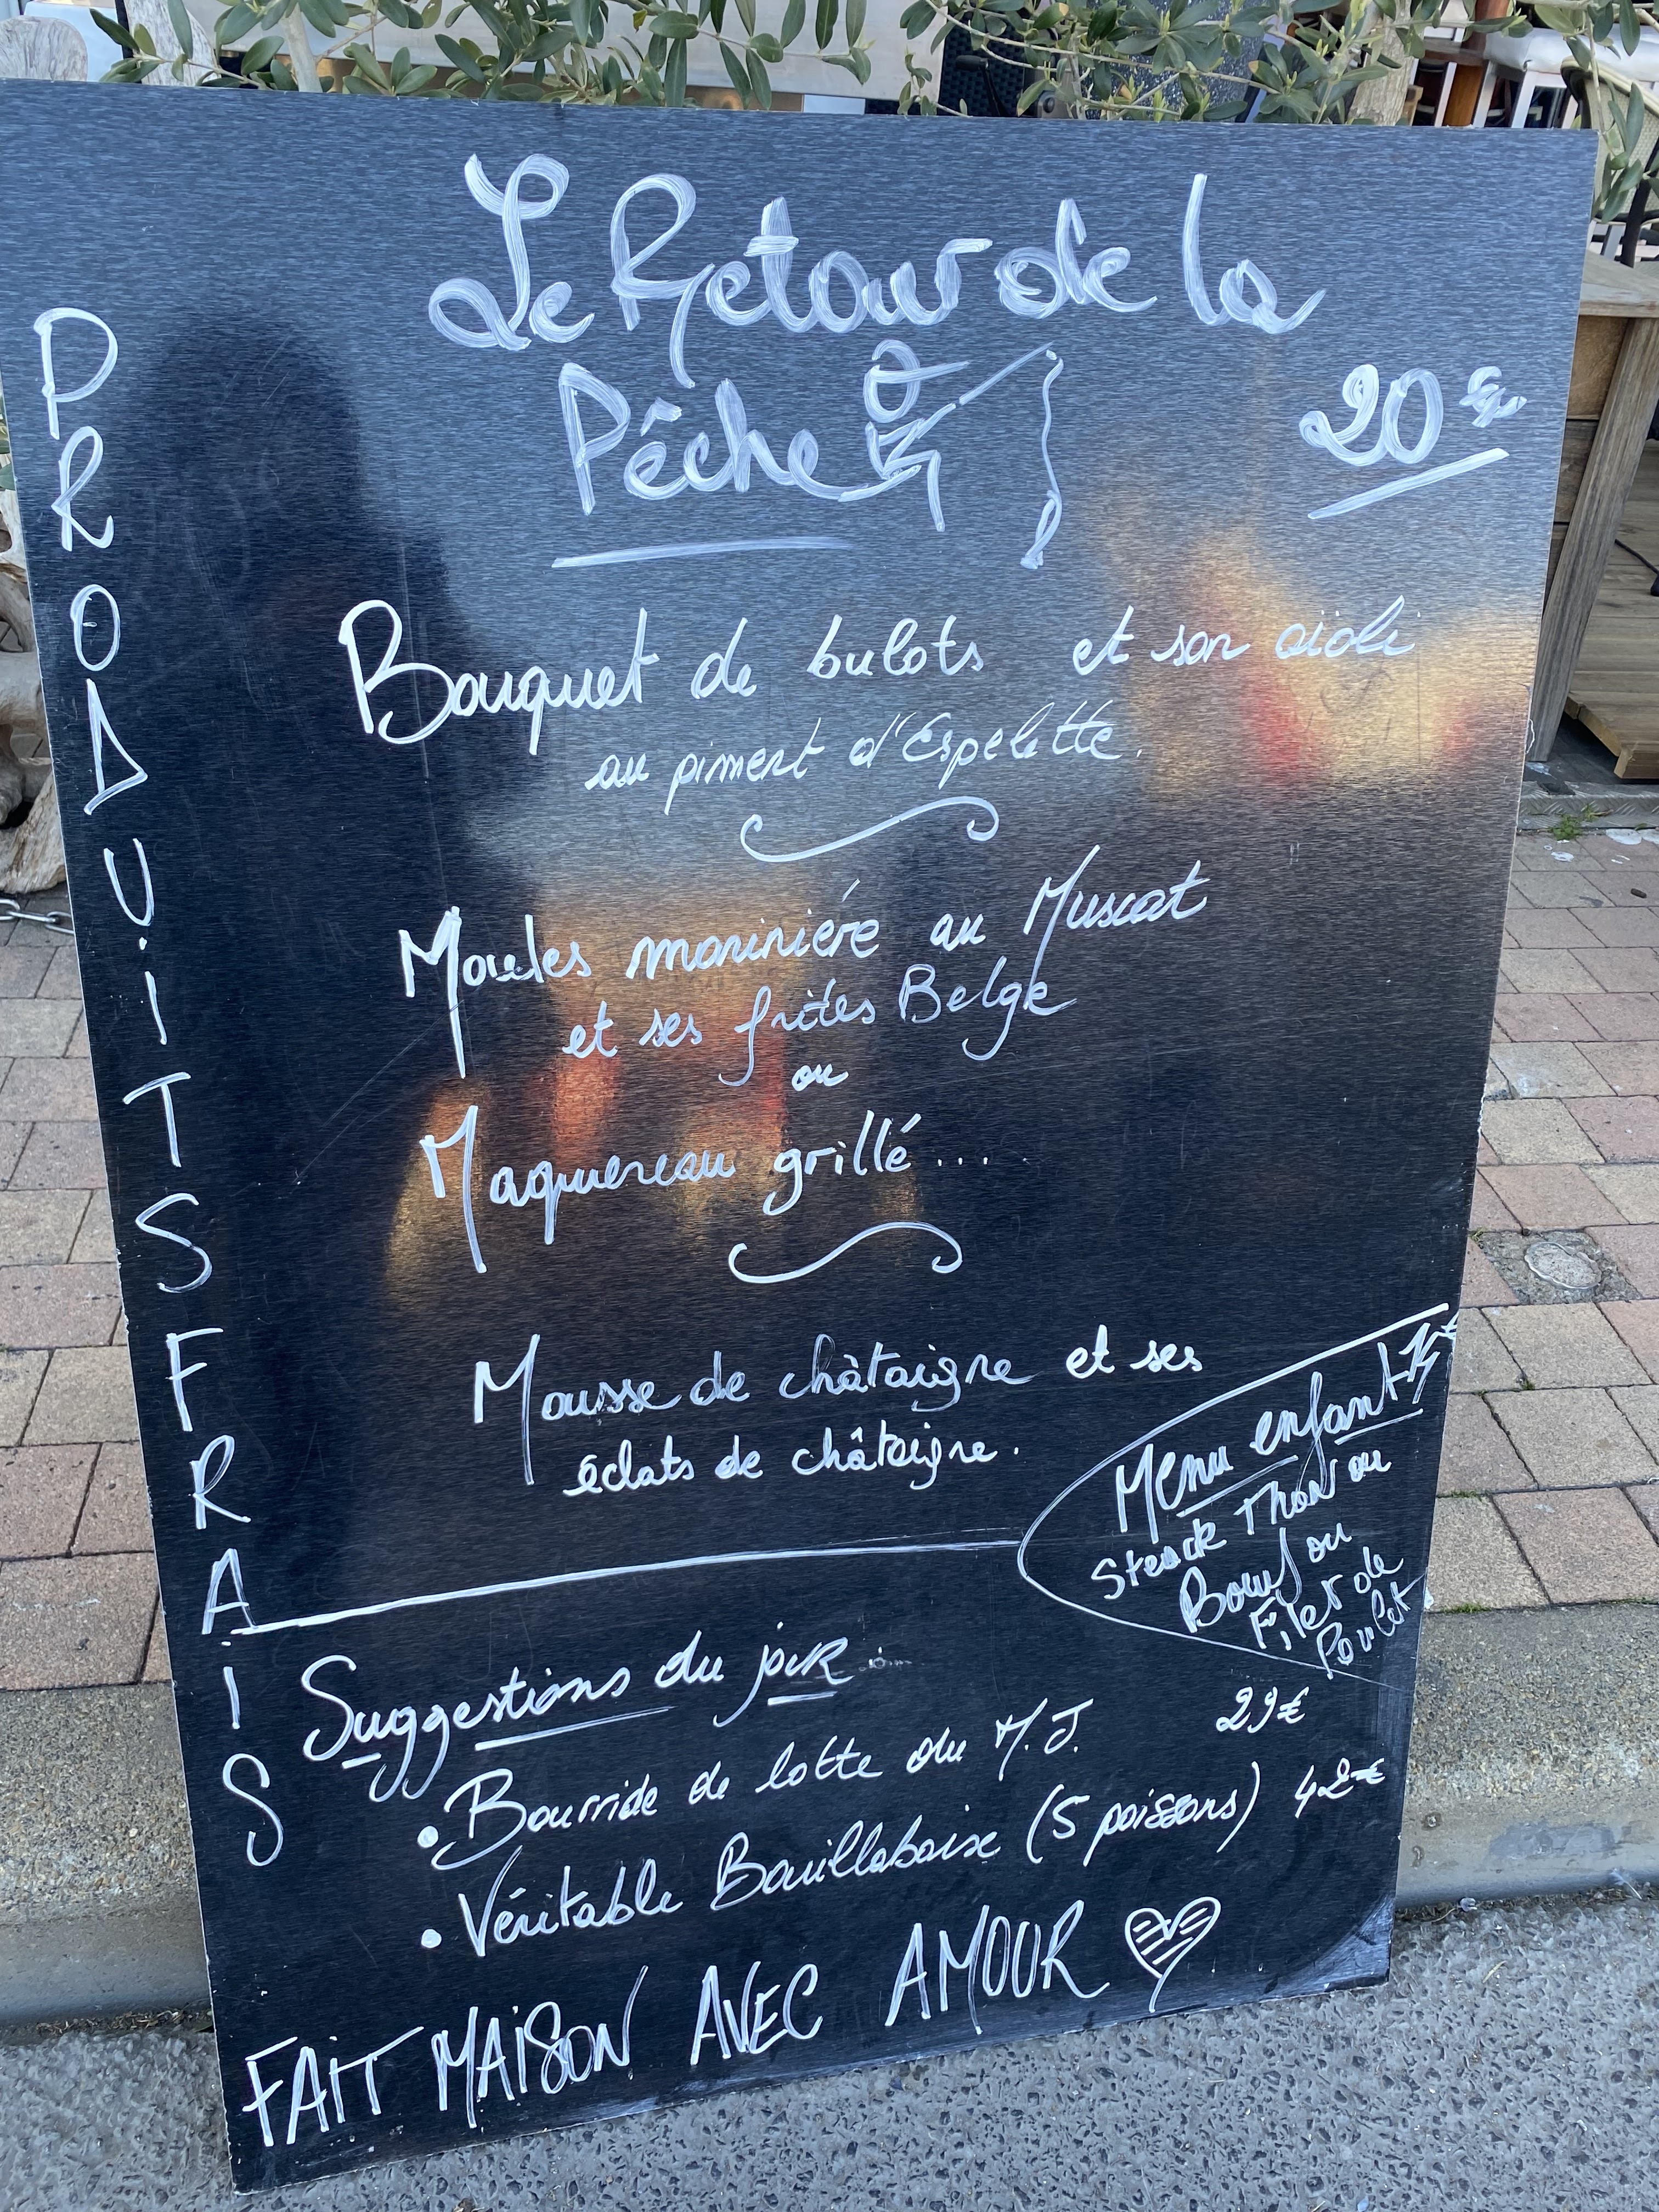 Le Retour de la
Pêche
20€
Bouquet de bulots et son aïoli
au piment d'Espelette.
Moules marinière au Muscat
et ses frites Belge
ou
Maquereau grillé...
Mousse de châtaigne et ses
éclats de châtaigne.
Menu enfant
Steack Thon ou
Boeuf ou
Filet de
Poulet
Suggestions du jour
• Bourride de lotte du M.J. 29€
• Véritable Bouillabaise (5 poissons) 42€
FAIT MAISON AVEC AMOUR
PRODUITS FRAIS